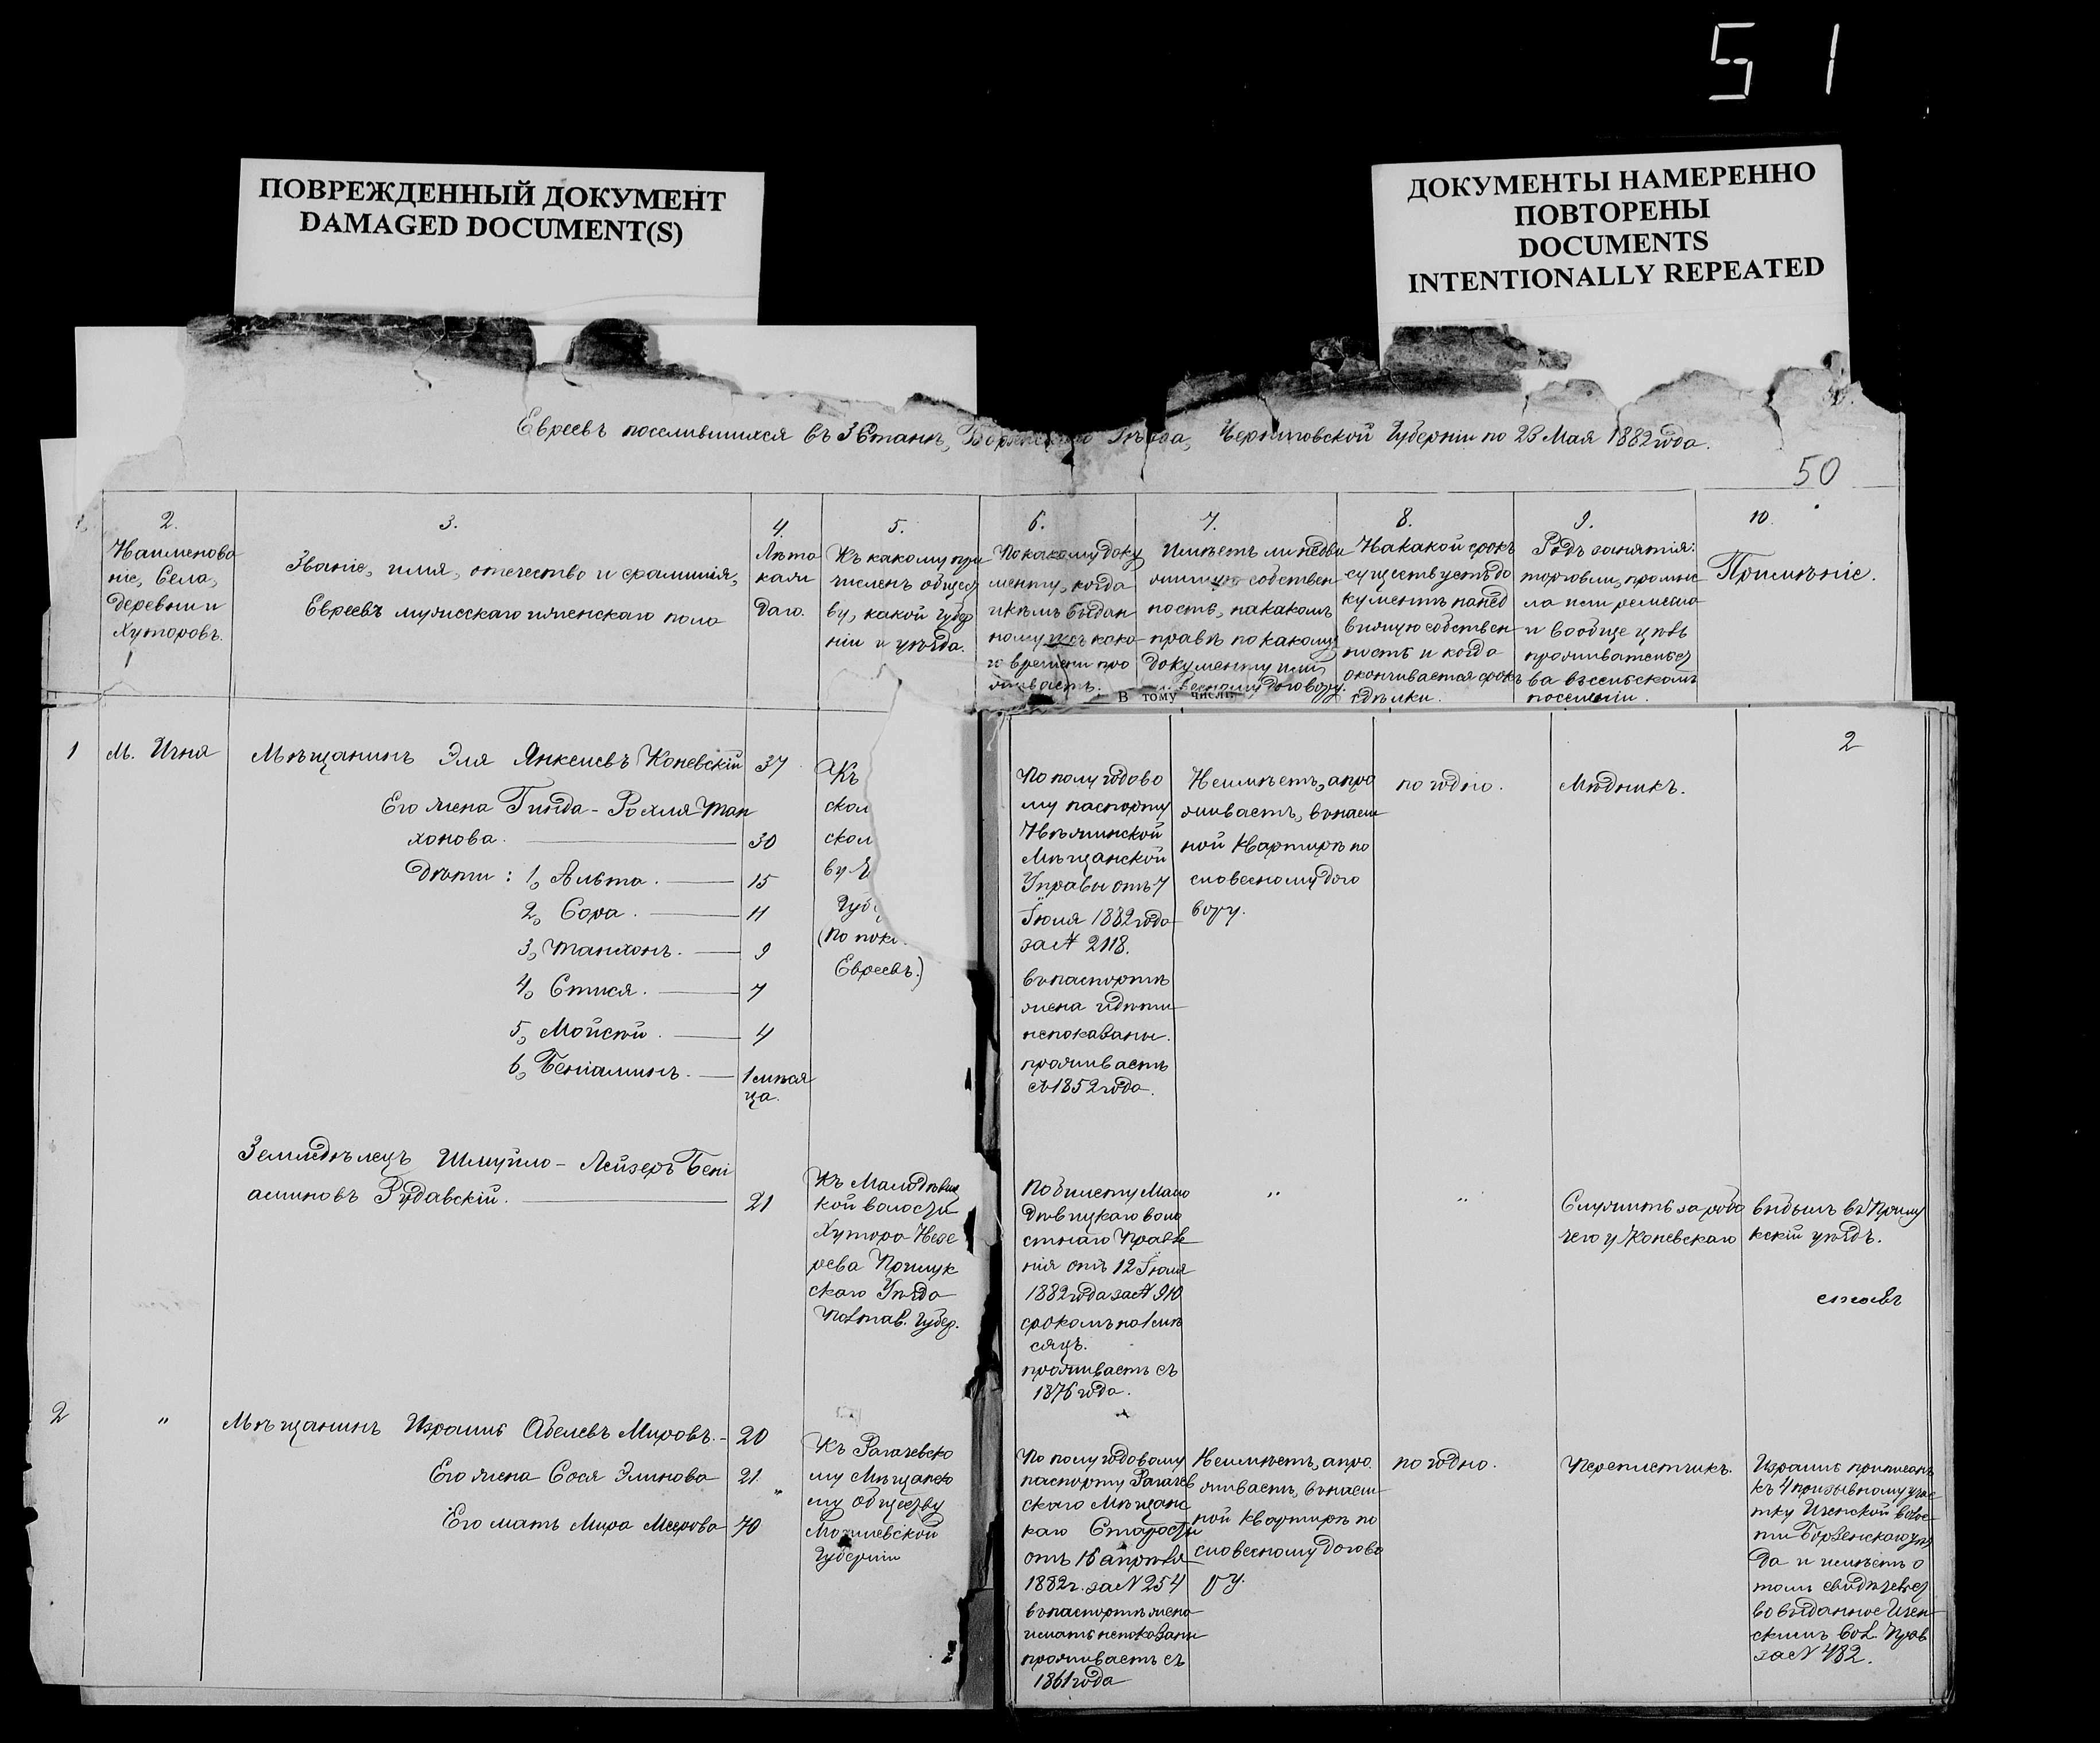 51
ПОВРЕЖДЕННЫЙ ДОКУМЕНТ
DAMAGED DOCUMENT(S)
ДОКУМЕНТЫ НАМЕРЕННО
ПОВТОРЕНЫ
DOCUMENTS
INTENTIONALLY REPEATED
Евреевъ поселившихся въ 3 Станѣ, Уѣзда, Черниговской Губерніи по 23 Мая 1882 года.
50
2.
Наименова
ніе, Села,
деревни и
Хуторовъ.
3.
Званіе, имя, отечество и фамилія,
Евреевъ мужескаго и женскаго пола
4.
Лѣта
каж
даго.
5.
Къ какому при
численъ общес
ву, какой Губер
ніи и уѣзда.
6.
По какому доку
менту, когда
и кѣмъ выдан
ному и съ како
го времени про
живаетъ.
7.
Имѣетъ ли недви
жимую собствен
ность, на какомъ
правѣ по какому
документу или
словесному договору.
В тому числѣ
8.
На какой срокъ
существуетъ до
кументъ на нед
вижную собствен
ность и когда
оканчивается срокъ
сдѣлки.
9.
Родъ занятія:
торговли, промыс
ла или ремесла
и вообще цѣль
проживательст
ва въ сельскомъ
поселеніи.
10.
Примѣніе.
2
1
М. Ичня
Мѣщанинъ Эля Янкелевъ Коневскій 37
Его жена Гинда - Рохля Тан
хонова. 30
Дѣти: 1, Альта. 15
2, Сора. 11
3, Танхонъ. 9
4, Стися. 7
5, Мойсѣй. 4
6, Беніаминъ. 1 мѣся
ца.
Къ
скол
скол
ву
Губ
(По пок
Евреевъ.)
По полугодово
му паспорту
Нѣжинской
Мѣщанской
Управы отъ 7
Іюля 1882 года
за № 2118.
въ паспортѣ
жена и дѣти
непоказаны.
проживаетъ
съ 1852 года.
Неимѣетъ, а про
живаетъ, въ наем
ной квартирѣ по
словесному дого
вору.
погодно.
Мѣдникъ.
Земледѣлецъ Шмуйло - Лейзеръ Бені
аминовъ Рудавскій. 21
Къ Малодѣвиц
кой волости
Хутора
Прилук
скаго Уѣзда
Полтав. Губер.
По билету Мало
дѣвицкаго воло
стнаго Правле
нія отъ 12 Іюля
1882 года за № 910
срокомъ на 1 мѣ
сяцъ.
проживаетъ съ
1876 года.
"
"
Служитъ за рабо
чего у Коневскаго
выбылъ въ Прилу
кскій уѣздъ.
2
"
Мѣщанинъ Израиль Абелевъ Мировъ. 20
Его жена Сося Элинова 21. "
Его мать Мира Меерова 70
Къ Рагачевско
му Мѣщанско
му обществу
Могилевской
Губерніи
По полугодовому
паспорту Рагачев
скаго Мѣщанс
каго Старосты
отъ 16 апрѣля
1882 г. за № 254
въ паспортѣ жена
и мать непоказаны
проживаетъ съ
1861 года
Неимѣетъ, а про
живаетъ, въ наем
ной квартирѣ по
словесному догово
ру.
погодно.
Переплетчикъ.
Израиль приписанъ
къ 4 призывному учас
тку Иченской волос
ти Борзенскаго уѣз
да и имѣетъ о
томъ свидѣтельст
во выданное Ичен
скимъ Вол. Прав
за № 482.